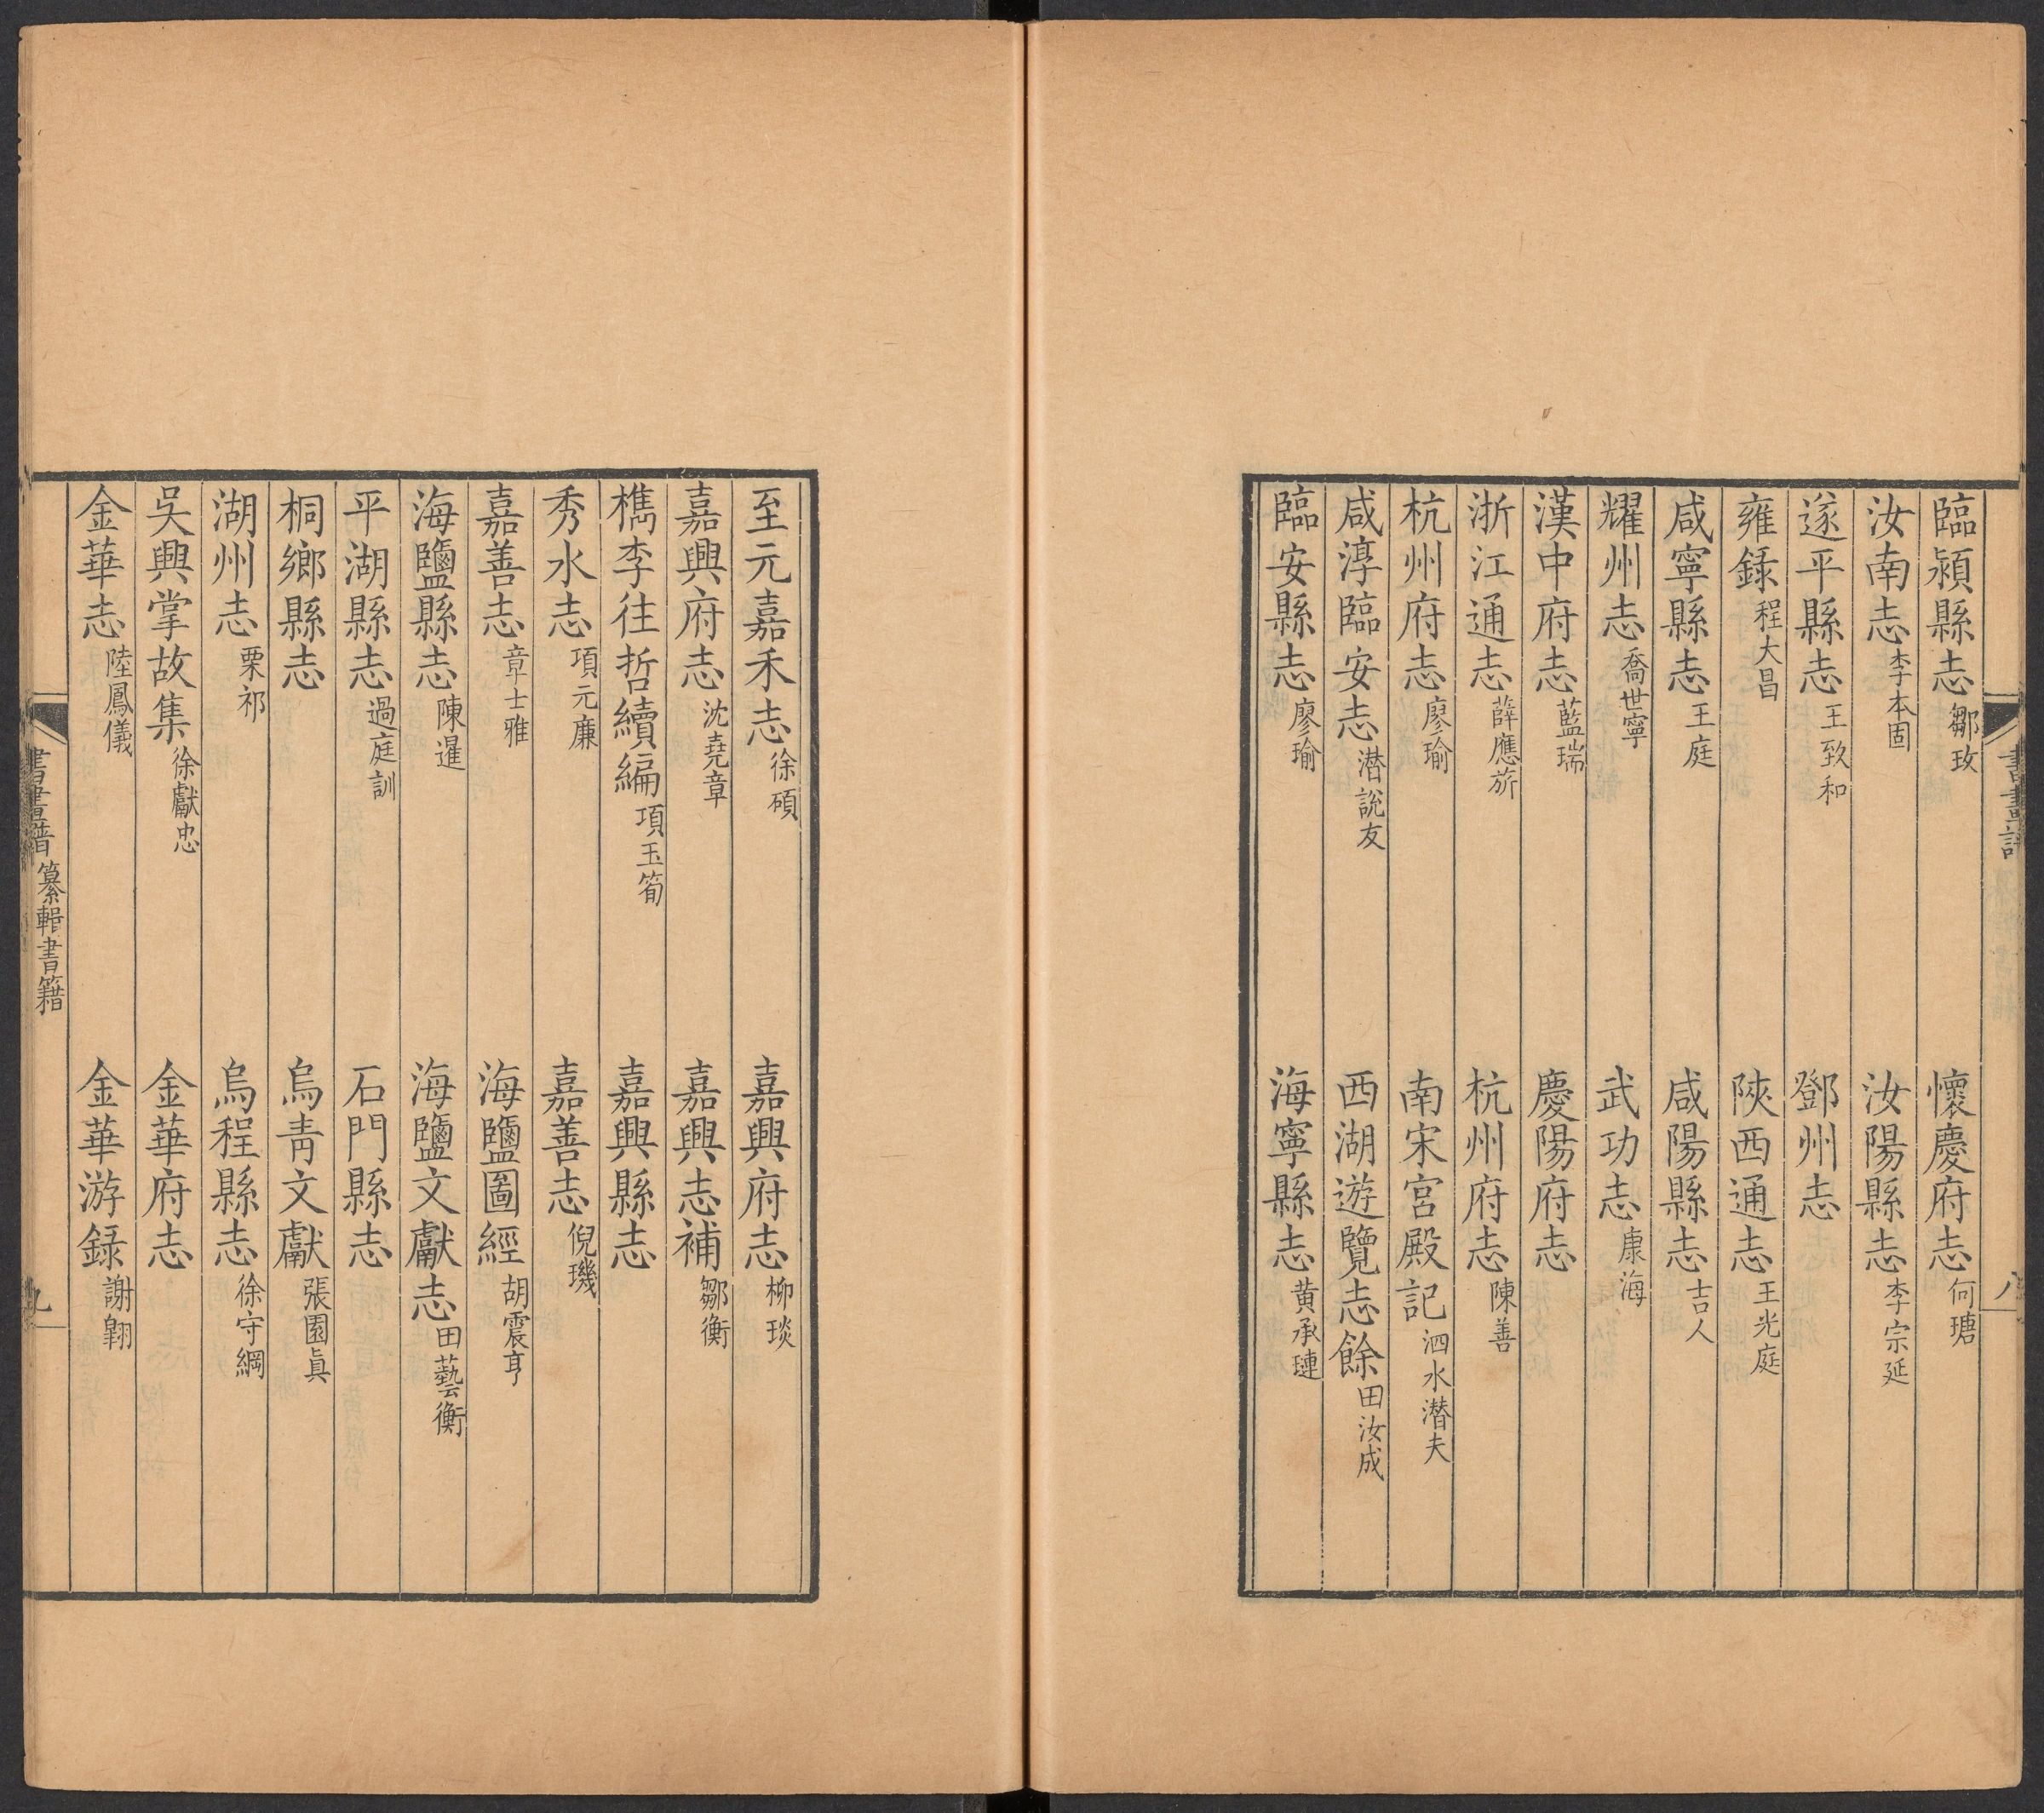 書畫譜
八
臨潁縣志 鄒玫　懷慶府志 何瑭
汝南志 李本固　汝陽縣志 李宗延
遂平縣志 王致和　鄧州志
雍錄 程大昌　陝西通志 王光庭
咸寧縣志 王庭　咸陽縣志 吉人
耀州志 喬世寧　武功志 康海
漢中府志 藍瑞　慶陽府志
浙江通志 薛應旂　杭州府志 陳善
杭州府志 廖瑜　南宋宮殿記 泗水潛夫
咸淳臨安志 潜說友　西湖遊覽志餘 田汝成
臨安縣志 廖瑜　海寧縣志 黄承璉
至元嘉禾志 徐碩　嘉興府志 柳琰
嘉興府志 沈堯章　嘉興志補 鄒衡
檇李往哲續編 項玉筍　嘉興縣志
秀水志 項元廉　嘉善志 倪璣
嘉善志 章士雅　海鹽圖經 胡震亨
海鹽縣志 陳暹　海鹽文獻志 田藝衡
平湖縣志 過庭訓　石門縣志
桐鄉縣志　烏青文獻 張園眞
湖州志 栗祁　烏程縣志 徐守綱
吳興掌故集 徐獻忠　金華府志
金華志 陸鳳儀　金華游錄 謝翱
書畫譜 纂輯書籍
九